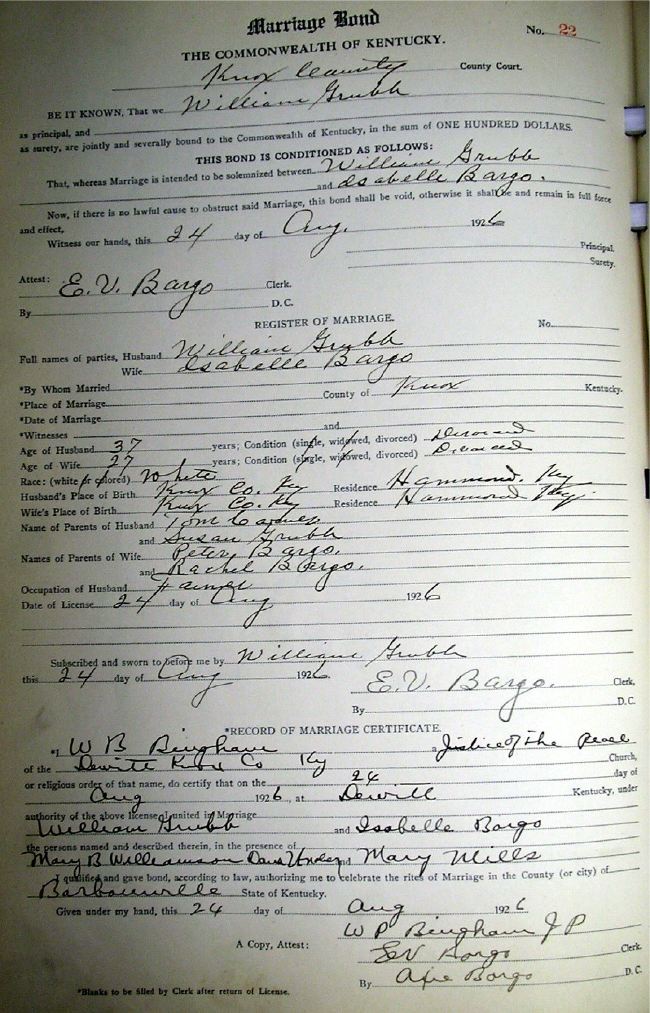 Marriage Bond
No. 22
THE COMMONWEALTH OF KENTUCKY.
Knox County County Court.
BE IT KNOWN, That we William Grubb
as principal, and
as surety, are jointly and severally bound to the Commonwealth of Kentucky, in the sum of ONE HUNDRED DOLLARS.
THIS BOND IS CONDITIONED AS FOLLOWS:
That, whereas Marriage is intended to be solemnized between William Grubb
and Isabelle Bargo.
Now, if there is no lawful cause to obstruct said Marriage, this bond shall be void, otherwise it shall be and remain in full force
and effect,
Witness our hands, this 24 day of Aug. 1926
Principal.
Surety.
Attest: E.V. Bargo Clerk.
By D.C.
REGISTER OF MARRIAGE.
No.
Full names of parties, Husband William Grubb
Wife Isabelle Bargo
*By Whom Married
*Place of Marriage County of Knox Kentucky.
*Date of Marriage
*Witnesses and
Age of Husband 37 years; Condition (single, widowed, divorced) Divorced
Age of Wife 27 years; Condition (single, widowed, divorced) Divorced
Race: (white or colored) White
Husband's Place of Birth Knox Co. Ky Residence Hammond, Ky
Wife's Place of Birth Knox Co. Ky Residence Hammond Ky.
Name of Parents of Husband Tom
and Susan Grubb
Names of Parents of Wife Peter Bargo.
and Rachel Bargo.
Occupation of Husband Farmer
Date of License 24 day of Aug 1926
Subscribed and sworn to before me by William Grubb
this 24 day of Aug 1926
E.V. Bargo. Clerk,
By D.C.
*RECORD OF MARRIAGE CERTIFICATE.
*I W B Bingham a Justice of the Peace
of the Dewitt Knox Co Ky Church,
or religious order of that name, do certify that on the 24 day of
Aug 1926, at Dewitt Kentucky, under
authority of the above license I united in Marriage
William Grubb and Isabelle Bargo
the persons named and described therein, in the presence of
Mary B Williamson and Mary Mills
I qualified and gave bond, according to law, authorizing me to celebrate the rites of Marriage in the County (or city) of
Barbourville State of Kentucky.
Given under my hand, this 24 day of Aug 1926
W P Bingham J P
A Copy, Attest: E V Bargo Clerk.
By Bargo D.C.
*Blanks to be filled by Clerk after return of License.